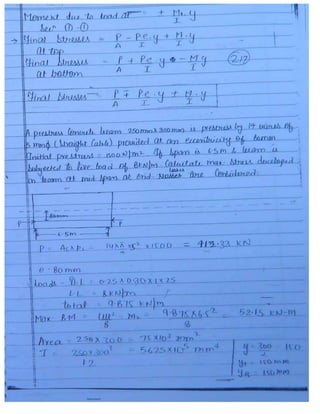 Moment due to load at = + M.y
I
Secn ①-①
→ Final Stresses = P - Pe.y + M.y
A I I
at top
Final Stresses - P + Pe y - My
A I I
at bottom
Final Stresses P ∓ Pe.y ± M.y
A I I
A prestress concrete beam 250mm x 300mm is prestress by 14 wires of
5 mmφ (straight cable) provided at an eccentricity of 80mm
(Initial prestress = 1500 N/m². If span is 6.5m & beam is
subjected to live load of 8kN/m Calculate max stress developed
in beam at mid span at end loses are considered.
80mm
P P
6.5m
P = Ac x Ps = 14 x π x 5² x 1500 = 412.33 KN
e = 80mm
Loads - D.L = 0.25 x 0.30 x 1 x 25
L.L = 8kN/m
total = 9.875 kN/m
Max BM = wl² = M = 9.875 x 6.5² = 52.15 KN-m
8 8
Area = 250 x 300 = 75 x 10³ mm²
I = 250 x 300³ = 5625 x 10⁵ mm⁴
12
y = 300 150
2
yt = 150mm
yb = 150mm